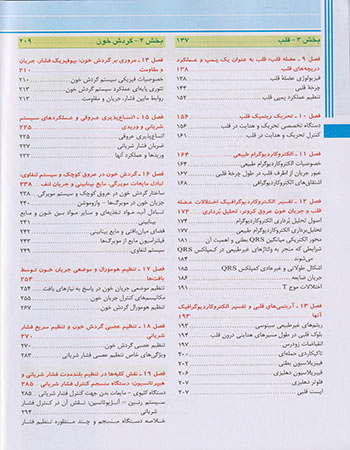 بخش ۳ - قلب ۱۳۷
فصل ۹ ـ عضله قلب؛ قلب به عنوان یک پمپ و عملکرد
دریچه‌های قلب ۱۳۸
فیزیولوژی عضلهٔ قلب ۱۳۸
چرخهٔ قلب ۱۴۴
تنظیم عملکرد پمپی قلب ۱۵۲
فصل ۱۰ ـ تحریک ریتمیک قلب ۱۵۶
دستگاه تخصصی تحریک و هدایت در قلب ۱۵۶
کنترل تحریک و هدایت در قلب ۱۶۱
فصل ۱۱ ـ الکتروکاردیوگرام طبیعی ۱۶۴
خصوصیات الکتروکاردیوگرام طبیعی ۱۶۴
جریان از اطراف قلب در طول چرخهٔ قلبی ۱۶۷
اشتقاق‌های الکتروکاردیوگرافی ۱۶۸
فصل ۱۲ ـ تفسیر الکتروکاردیوگرافیک اختلالات عضله
قلب و جریان خون عروق کرونر: تحلیل بُرداری ۱۷۴
اصول تحلیل بُرداری الکتروکاردیوگرام ۱۷۴
تحلیل بُرداری الکتروکاردیوگرام طبیعی ۱۷۷
محور الکتریکی میانگین QRS بطنی و اهمیت آن ۱۸۱
شرایطی که منجر به ولتاژهای غیرطبیعی در کمپلکس QRS
می‌شوند ۱۸۴
اشکال طولانی و غیرعادی کمپلکس QRS ۱۸۵
جریان ضایعه ۱۸۶
اختلالات موج T ۱۹۱
فصل ۱۳ ـ آریتمی‌های قلبی و تفسیر الکتروکاردیوگرافیک
آنها ۱۹۳
ریتم‌های غیرطبیعی سینوسی ۱۹۳
بلوک قلبی در طول مسیرهای هدایتی درون قلب ۱۹۴
انقباضات زودرس ۱۹۷
تاکیکاردی حمله‌ای ۲۰۰
فیبریلاسیون بطنی ۲۰۲
فیبریلاسیون دهلیزی ۲۰۶
فلوتر دهلیزی ۲۰۷
ایست قلبی ۲۰۷
بخش ۴ - گردش خون ۲۰۹
فصل ۱۴ ـ مروری بر گردش خون: بیوفیزیک فشار، جریان
و مقاومت ۲۱۰
خصوصیات فیزیکی سیستم گردش خون ۲۱۰
تئوری پایه‌ای عملکرد سیستم گردش خون ۲۱۳
روابط مابین فشار، جریان و مقاومت ۲۱۳
فصل ۱۵ ـ اتساع‌پذیری عروقی و عملکردهای سیستم
شریانی و وریدی ۲۲۵
اتساع‌پذیری عروق ۲۲۵
ضربان فشار شریانی ۲۲۷
وریدها و عملکرد آنها ۲۳۲
فصل ۱۶ ـ گردش خون در عروق کوچک و سیستم لنفاوی،
تبادل مایعات مویرگی، مایع بینابینی و جریان لنف ۲۳۸
ساختار گردش خون در عروق کوچک و سیستم مویرگی ۲۳۸
جریان خون در مویرگ‌ها — وازوموشن ۲۴۰
تبادل آب، مواد تغذیه‌ای و سایر مواد بین خون و مایع
بینابینی ۲۴۱
فضای میان‌بافتی و مایع بینابینی ۲۴۲
فیلتراسیون مایع از مویرگ‌ها ۲۴۳
سیستم لنفاوی ۲۴۹
فصل ۱۷ ـ تنظیم هومورال و موضعی جریان خون توسط
بافت‌ها ۲۵۴
تنظیم موضعی جریان خون در پاسخ به نیازهای بافت ۲۵۴
مکانیسم‌های کنترل جریان خون ۲۵۵
تنظیم هومورال گردش خون ۲۶۷
فصل ۱۸ ـ تنظیم عصبی گردش خون و تنظیم سریع فشار
شریانی ۲۷۰
تنظیم عصبی گردش خون ۲۷۰
ویژگی‌های خاص تنظیم عصبی فشار شریانی ۲۸۳
فصل ۱۹ ـ نقش کلیه‌ها در تنظیم بلندمدت فشار شریانی و
هیپرتانسیون: دستگاه منسجم کنترل فشار شریانی ۲۸۵
دستگاه کلیوی - مایعات بدن جهت کنترل فشار شریانی ۲۸۵
سیستم رنین - آنژیوتانسین: نقش آن در کنترل فشار
شریانی ۲۹۴
خلاصه دستگاه منسجم و چند منظوره تنظیم فشار